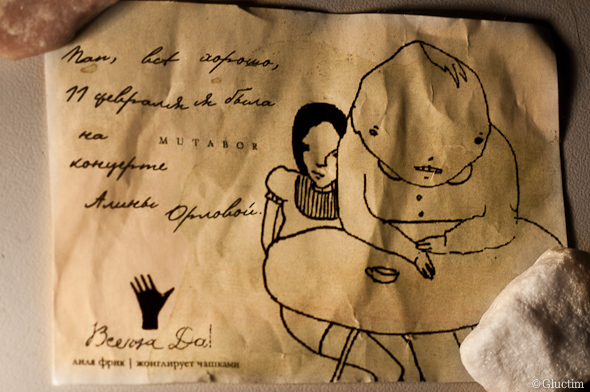 Пап, всё хорошо,
11 февраля я была
на
MUTABOR
концерте
Алины Орловой.
Всегда Да!
лиля фрик | жонглирует чашками
©Gluctim